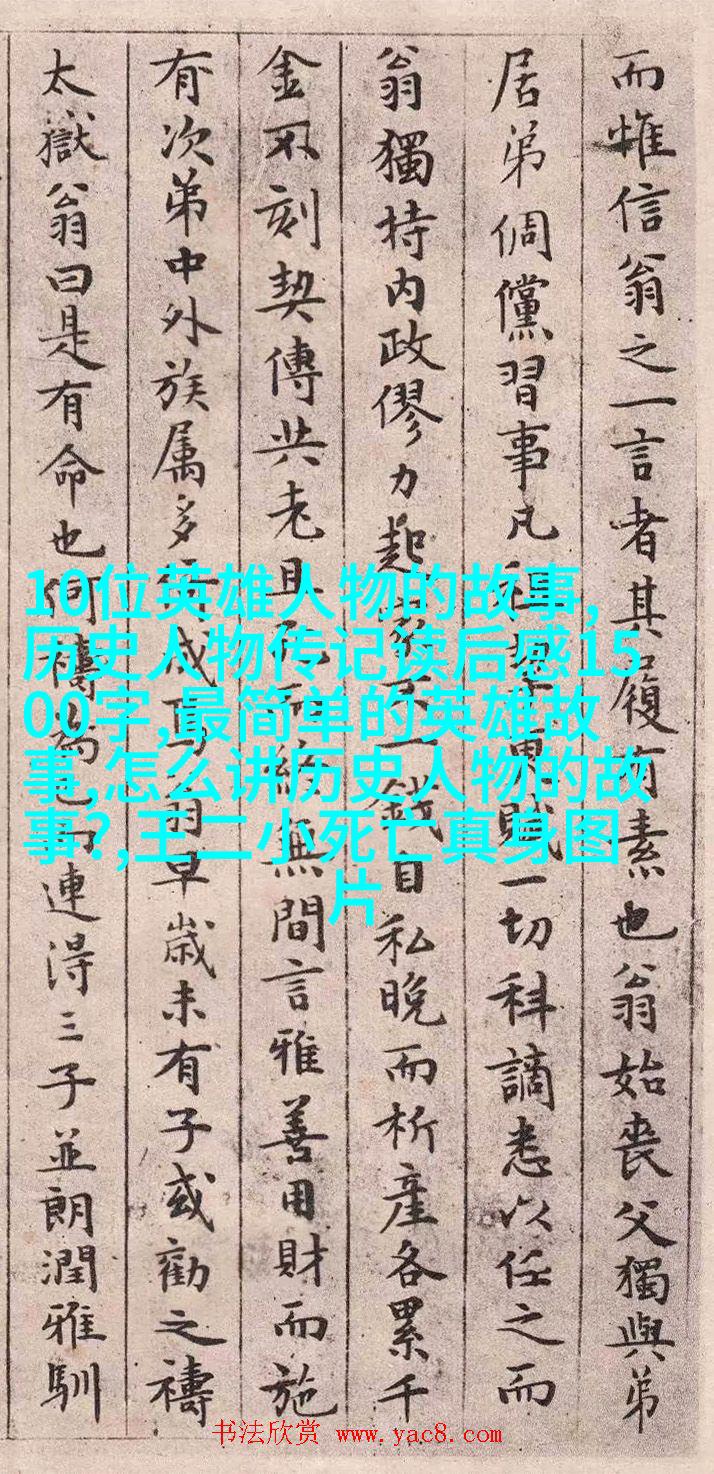 而惟信翁之一言者其履有素也翁始喪父獨與弟
居弟倜儻習事凡租 賦一切科謫悉以任之而
翁獨持内政僇力起 不一錢自私晚而析産各累千
金不刻契傳共老且死 無間言雅善用財而施
有次弟中外族属多 成 羽早歳未有子或勸之禱
太嶽翁曰是有命也何禱為已而連淂三子並朗潤雅馴
10位英雄人物的故事,
历史人物传记读后感15
00字,最简单的英雄故
事,怎么讲历史人物的故
事?,王二小死亡真身图
片
书法欣赏 www.yac8.com